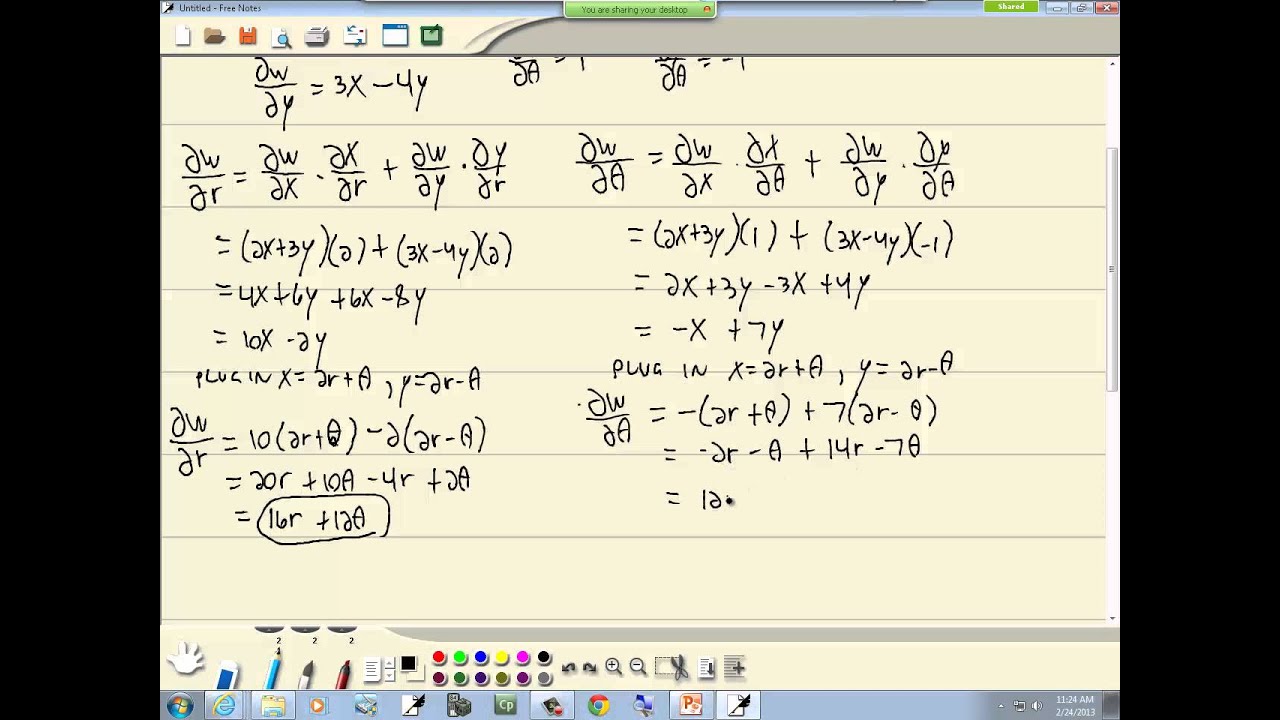 Untitled - Free Notes
You are sharing your desktop
Shared
∂w/∂y = 3x - 4y
∂θ = 1
∂θ = -1
∂w/∂r = ∂w/∂x · ∂x/∂r + ∂w/∂y · ∂y/∂r
= (2x+3y)(2) + (3x-4y)(2)
= 4x + 6y + 6x - 8y
= 10x - 2y
PLUG IN x = 2r + θ, y = 2r - θ
∂w/∂r = 10(2r+θ) - 2(2r-θ)
= 20r + 10θ - 4r + 2θ
= 16r + 12θ
∂w/∂θ = ∂w/∂x · ∂x/∂θ + ∂w/∂y · ∂y/∂θ
= (2x+3y)(1) + (3x-4y)(-1)
= 2x + 3y - 3x + 4y
= -x + 7y
PLUG IN x = 2r + θ, y = 2r - θ
∂w/∂θ = -(2r + θ) + 7(2r - θ)
= -2r - θ + 14r - 7θ
= 12
2 2 2
Cp
11:24 AM
2/24/2013